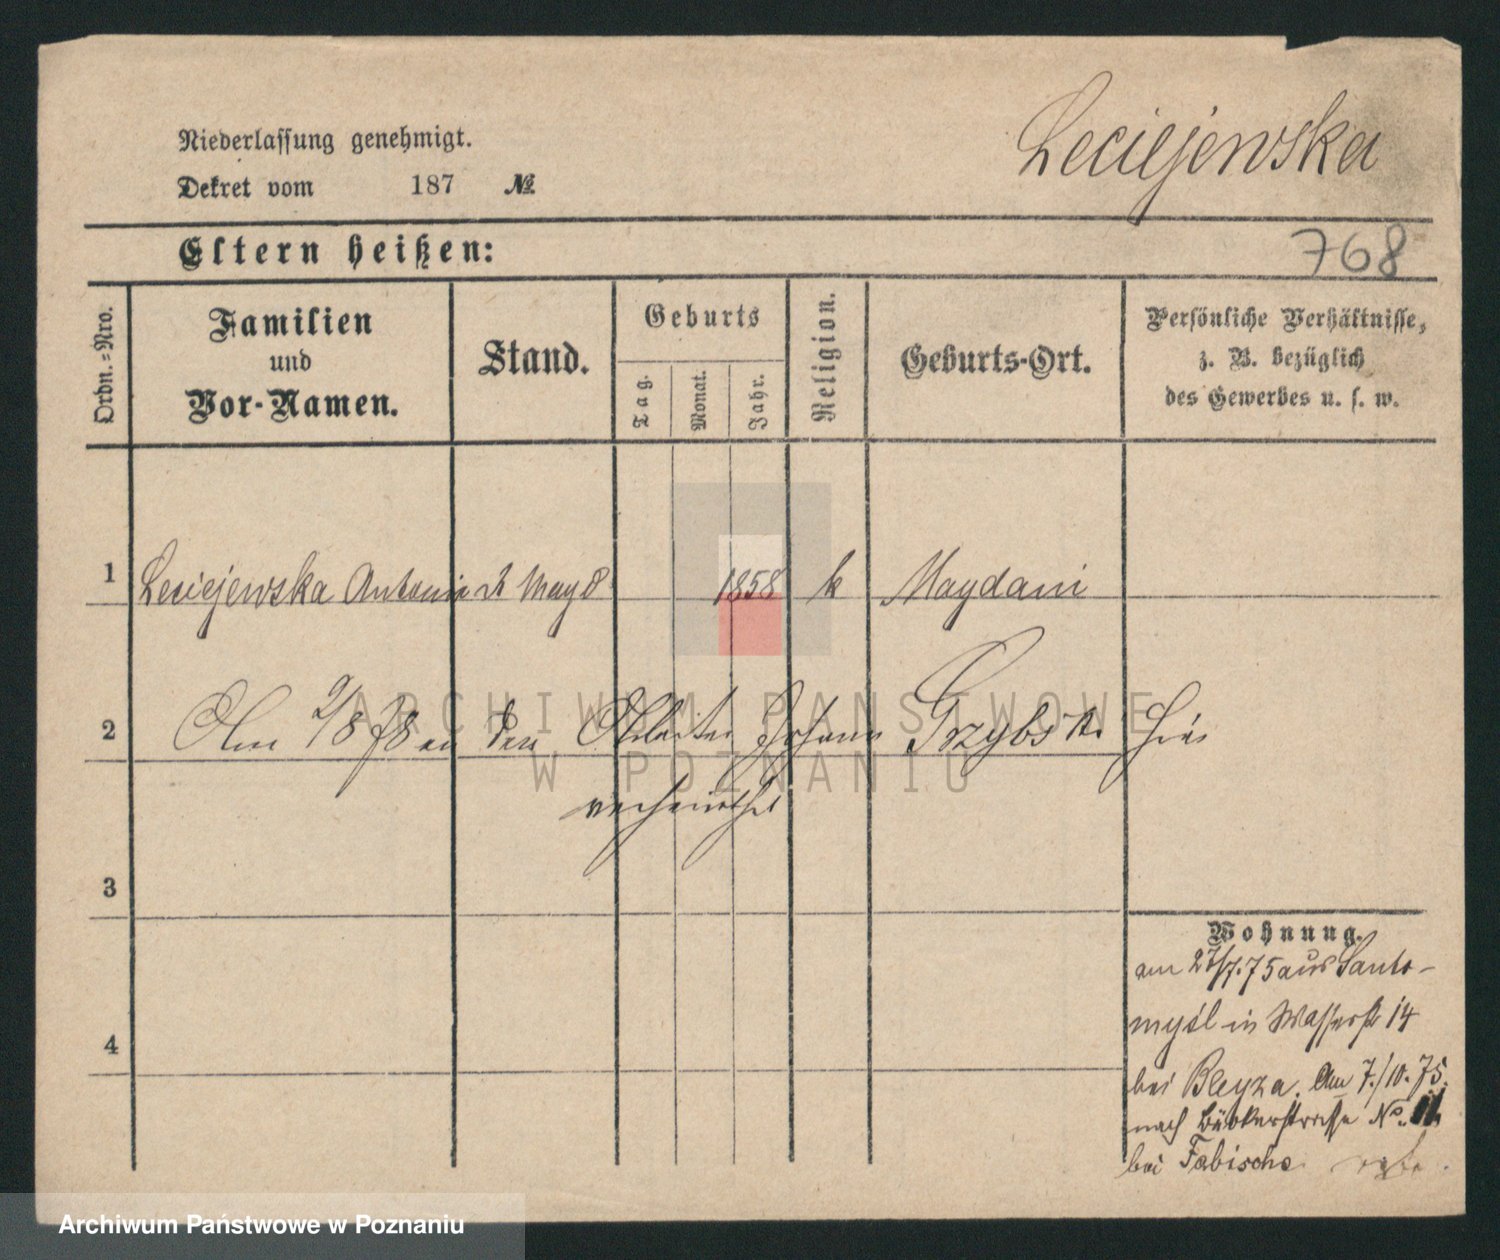 Leciejewska
Niederlassung genehmigt.
Dekret vom 187 №
Eltern heißen:
768
Ordn.=Nro.
Familien
und
Vor-Namen.
Stand.
Geburts
Tag.
Monat.
Jahr.
Religion.
Geburts-Ort.
Persönliche Verhältnisse,
z. B. bezüglich
des Gewerbes u. s. w.
1 Leciejewska Antonia Magd 1858 k Maydani
2 Am 9/8 78 an den Arbeiter Johann Grzybski hier
verheirathet
3
Wohnung.
am 27/7.75 aus Santo-
myśl in Wasserstr 14
bei Bleyza. Am 7./10.75.
nach Bäckerstrasse No. 11
bei Fabische
4
ARCHIWUM PAŃSTWOWE
W POZNANIU
Archiwum Państwowe w Poznaniu